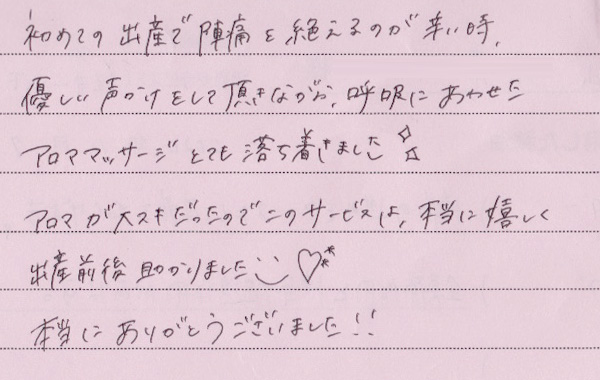 初めての出産で陣痛を絶えるのが辛い時、
優しい声かけをして頂きながら、呼吸にあわせた
アロママッサージとても落ち着きました
アロマが大スキだったのでこのサービスは、本当に嬉しく
出産前後助かりました
本当にありがとうございました!!